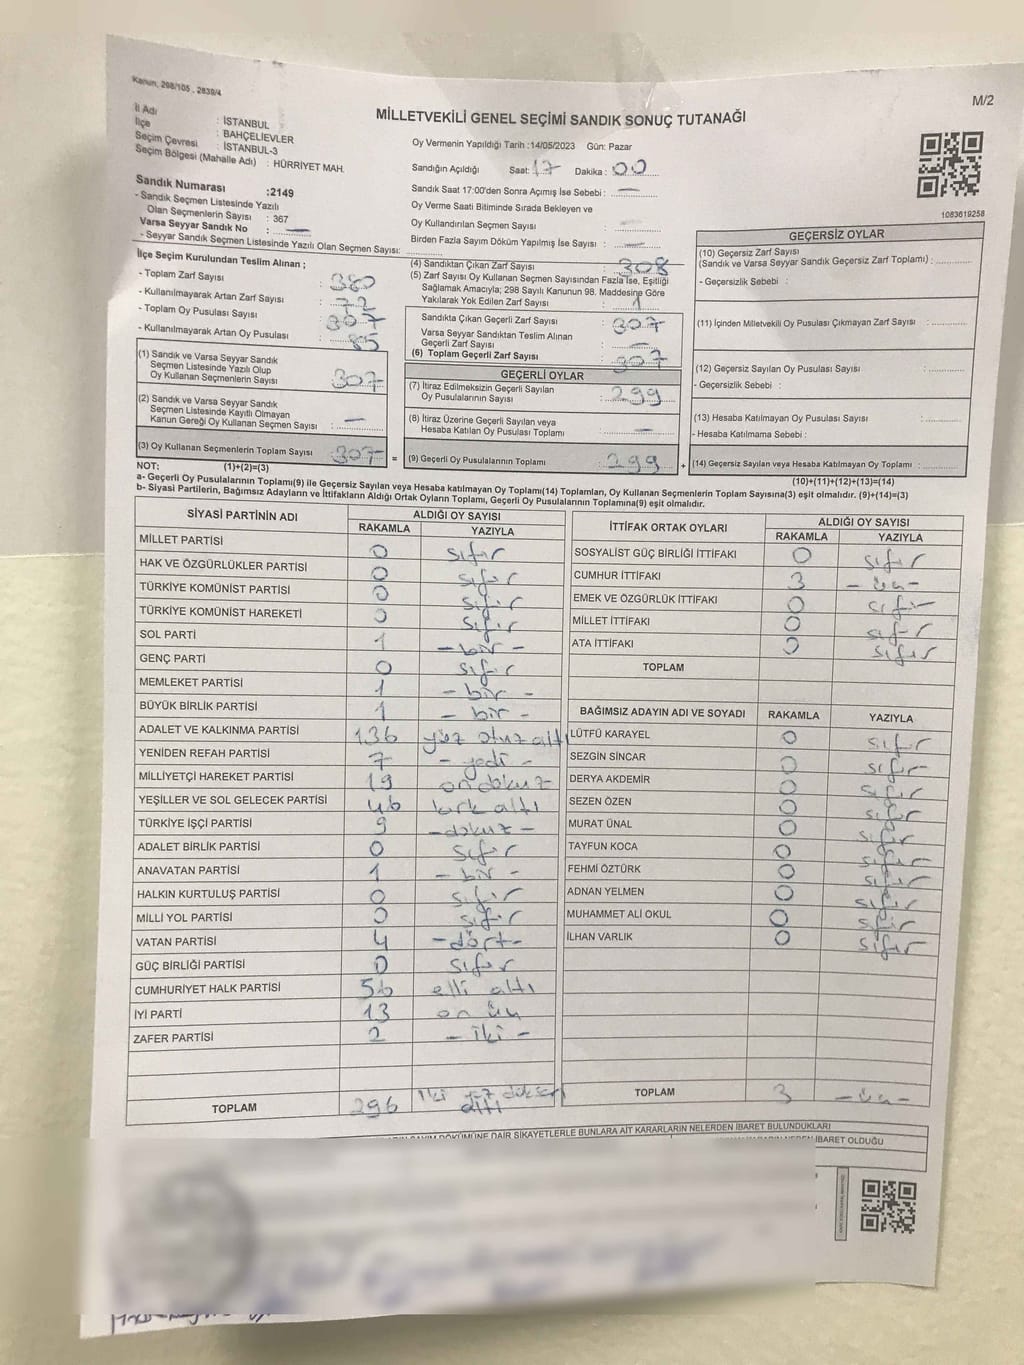 Kanun, 298/105 , 2839/4
M/2
MİLLETVEKİLİ GENEL SEÇİMİ SANDIK SONUÇ TUTANAĞI
İl Adı : İSTANBUL
İlçe : BAHÇELİEVLER
Seçim Çevresi : İSTANBUL-3
Seçim Bölgesi (Mahalle Adı) : HÜRRİYET MAH.
Oy Vermenin Yapıldığı Tarih :14/05/2023 Gün: Pazar
Sandığın Açıldığı Saat: 17 Dakika : 00
Sandık Saat 17:00'den Sonra Açımış İse Sebebi : —
Oy Verme Saati Bitiminde Sırada Bekleyen ve
Oy Kullandırılan Seçmen Sayısı :
Birden Fazla Sayım Döküm Yapılmış İse Sayısı : —
1083619258
Sandık Numarası :2149
- Sandık Seçmen Listesinde Yazılı
Olan Seçmenlerin Sayısı : 367
Varsa Seyyar Sandık No : —
- Seyyar Sandık Seçmen Listesinde Yazılı Olan Seçmen Sayısı:
İlçe Seçim Kurulundan Teslim Alınan ;
- Toplam Zarf Sayısı : 380
- Kullanılmayarak Artan Zarf Sayısı : 72
- Toplam Oy Pusulası Sayısı : 307
- Kullanılmayarak Artan Oy Pusulası : 85
(1) Sandık ve Varsa Seyyar Sandık
Seçmen Listesinde Yazılı Olup
Oy Kullanan Seçmenlerin Sayısı : 307
(2) Sandık ve Varsa Seyyar Sandık
Seçmen Listesinde Kayıtlı Olmayan
Kanun Gereği Oy Kullanan Seçmen Sayısı : —
(3) Oy Kullanan Seçmenlerin Toplam Sayısı : 307 =
(4) Sandıktan Çıkan Zarf Sayısı : 308
(5) Zarf Sayısı Oy Kullanan Seçmen Sayısından Fazla İse, Eşitliği
Sağlamak Amacıyla; 298 Sayılı Kanunun 98. Maddesine Göre
Yakılarak Yok Edilen Zarf Sayısı : 1
Sandıkta Çıkan Geçerli Zarf Sayısı : 307
Varsa Seyyar Sandıktan Teslim Alınan
Geçerli Zarf Sayısı : —
(6) Toplam Geçerli Zarf Sayısı : 307
GEÇERLİ OYLAR
(7) İtiraz Edilmeksizin Geçerli Sayılan
Oy Pusulalarının Sayısı : 299
(8) İtiraz Üzerine Geçerli Sayılan veya
Hesaba Katılan Oy Pusulası Toplamı : —
(9) Geçerli Oy Pusulalarının Toplamı : 299 +
GEÇERSİZ OYLAR
(10) Geçersiz Zarf Sayısı
(Sandık ve Varsa Seyyar Sandık Geçersiz Zarf Toplamı) :
- Geçersizlik Sebebi :
(11) İçinden Milletvekili Oy Pusulası Çıkmayan Zarf Sayısı :
(12) Geçersiz Sayılan Oy Pusulası Sayısı :
- Geçersizlik Sebebi :
(13) Hesaba Katılmayan Oy Pusulası Sayısı :
- Hesaba Katılmama Sebebi :
(14) Geçersiz Sayılan veya Hesaba Katılmayan Oy Toplamı :
NOT: (1)+(2)=(3) (10)+(11)+(12)+(13)=(14)
a- Geçerli Oy Pusulalarının Toplamı(9) ile Geçersiz Sayılan veya Hesaba katılmayan Oy Toplamı(14) Toplamları, Oy Kullanan Seçmenlerin Toplam Sayısına(3) eşit olmalıdır. (9)+(14)=(3)
b- Siyasi Partilerin, Bağımsız Adayların ve İttifakların Aldığı Ortak Oyların Toplamı, Geçerli Oy Pusulalarının Toplamına(9) eşit olmalıdır.
SİYASİ PARTİNİN ADI ALDIĞI OY SAYISI
RAKAMLA YAZIYLA
MİLLET PARTİSİ 0 sıfır
HAK VE ÖZGÜRLÜKLER PARTİSİ 0 sıfır
TÜRKİYE KOMÜNİST PARTİSİ 0 sıfır
TÜRKİYE KOMÜNİST HAREKETİ 0 sıfır
SOL PARTİ 1 - bir -
GENÇ PARTİ 0 sıfır
MEMLEKET PARTİSİ 1 - bir -
BÜYÜK BİRLİK PARTİSİ 1 - bir -
ADALET VE KALKINMA PARTİSİ 136 yüz otuz altı
YENİDEN REFAH PARTİSİ 7 - yedi -
MİLLİYETÇİ HAREKET PARTİSİ 19 on dokuz
YEŞİLLER VE SOL GELECEK PARTİSİ 46 kırk altı
TÜRKİYE İŞÇİ PARTİSİ 9 - dokuz -
ADALET BİRLİK PARTİSİ 0 sıfır
ANAVATAN PARTİSİ 1 - bir -
HALKIN KURTULUŞ PARTİSİ 0 sıfır
MİLLİ YOL PARTİSİ 0 sıfır
VATAN PARTİSİ 4 - dört -
GÜÇ BİRLİĞİ PARTİSİ 0 sıfır
CUMHURİYET HALK PARTİSİ 56 elli altı
İYİ PARTİ 13 on üç
ZAFER PARTİSİ 2 - iki -
TOPLAM 296 iki yüz doksan altı
İTTİFAK ORTAK OYLARI ALDIĞI OY SAYISI
RAKAMLA YAZIYLA
SOSYALİST GÜÇ BİRLİĞİ İTTİFAKI 0 sıfır
CUMHUR İTTİFAKI 3 - üç -
EMEK VE ÖZGÜRLÜK İTTİFAKI 0 sıfır
MİLLET İTTİFAKI 0 sıfır
ATA İTTİFAKI 0 sıfır
TOPLAM
BAĞIMSIZ ADAYIN ADI VE SOYADI RAKAMLA YAZIYLA
LÜTFÜ KARAYEL 0 sıfır
SEZGİN SİNCAR 0 sıfır
DERYA AKDEMİR 0 sıfır
SEZEN ÖZEN 0 sıfır
MURAT ÜNAL 0 sıfır
TAYFUN KOCA 0 sıfır
FEHMİ ÖZTÜRK 0 sıfır
ADNAN YELMEN 0 sıfır
MUHAMMET ALİ OKUL 0 sıfır
İLHAN VARLIK 0 sıfır
TOPLAM 3 - üç -
DÖKÜMÜNE DAİR ŞİKAYETLERLE BUNLARA AİT KARARLARIN NELERDEN İBARET BULUNDUKLARI
İBARET OLDUĞU